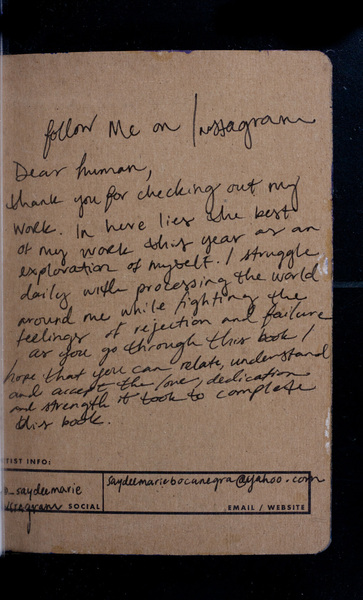 follow Me on Instagram
Dear human,
thank you for checking out my
work. In here lies the best
of my work this year as an
exploration of myself. I struggle
daily with processing the world
around me while fighting the
feelings of rejection and failure
as you go through this book I
hope that you can relate, understand
and accept the love, dedication
and strength it took to complete
this book.
TIST INFO:
saydeemariebocanegra@yahoo.com
_saydeemarie
SOCIAL
EMAIL / WEBSITE